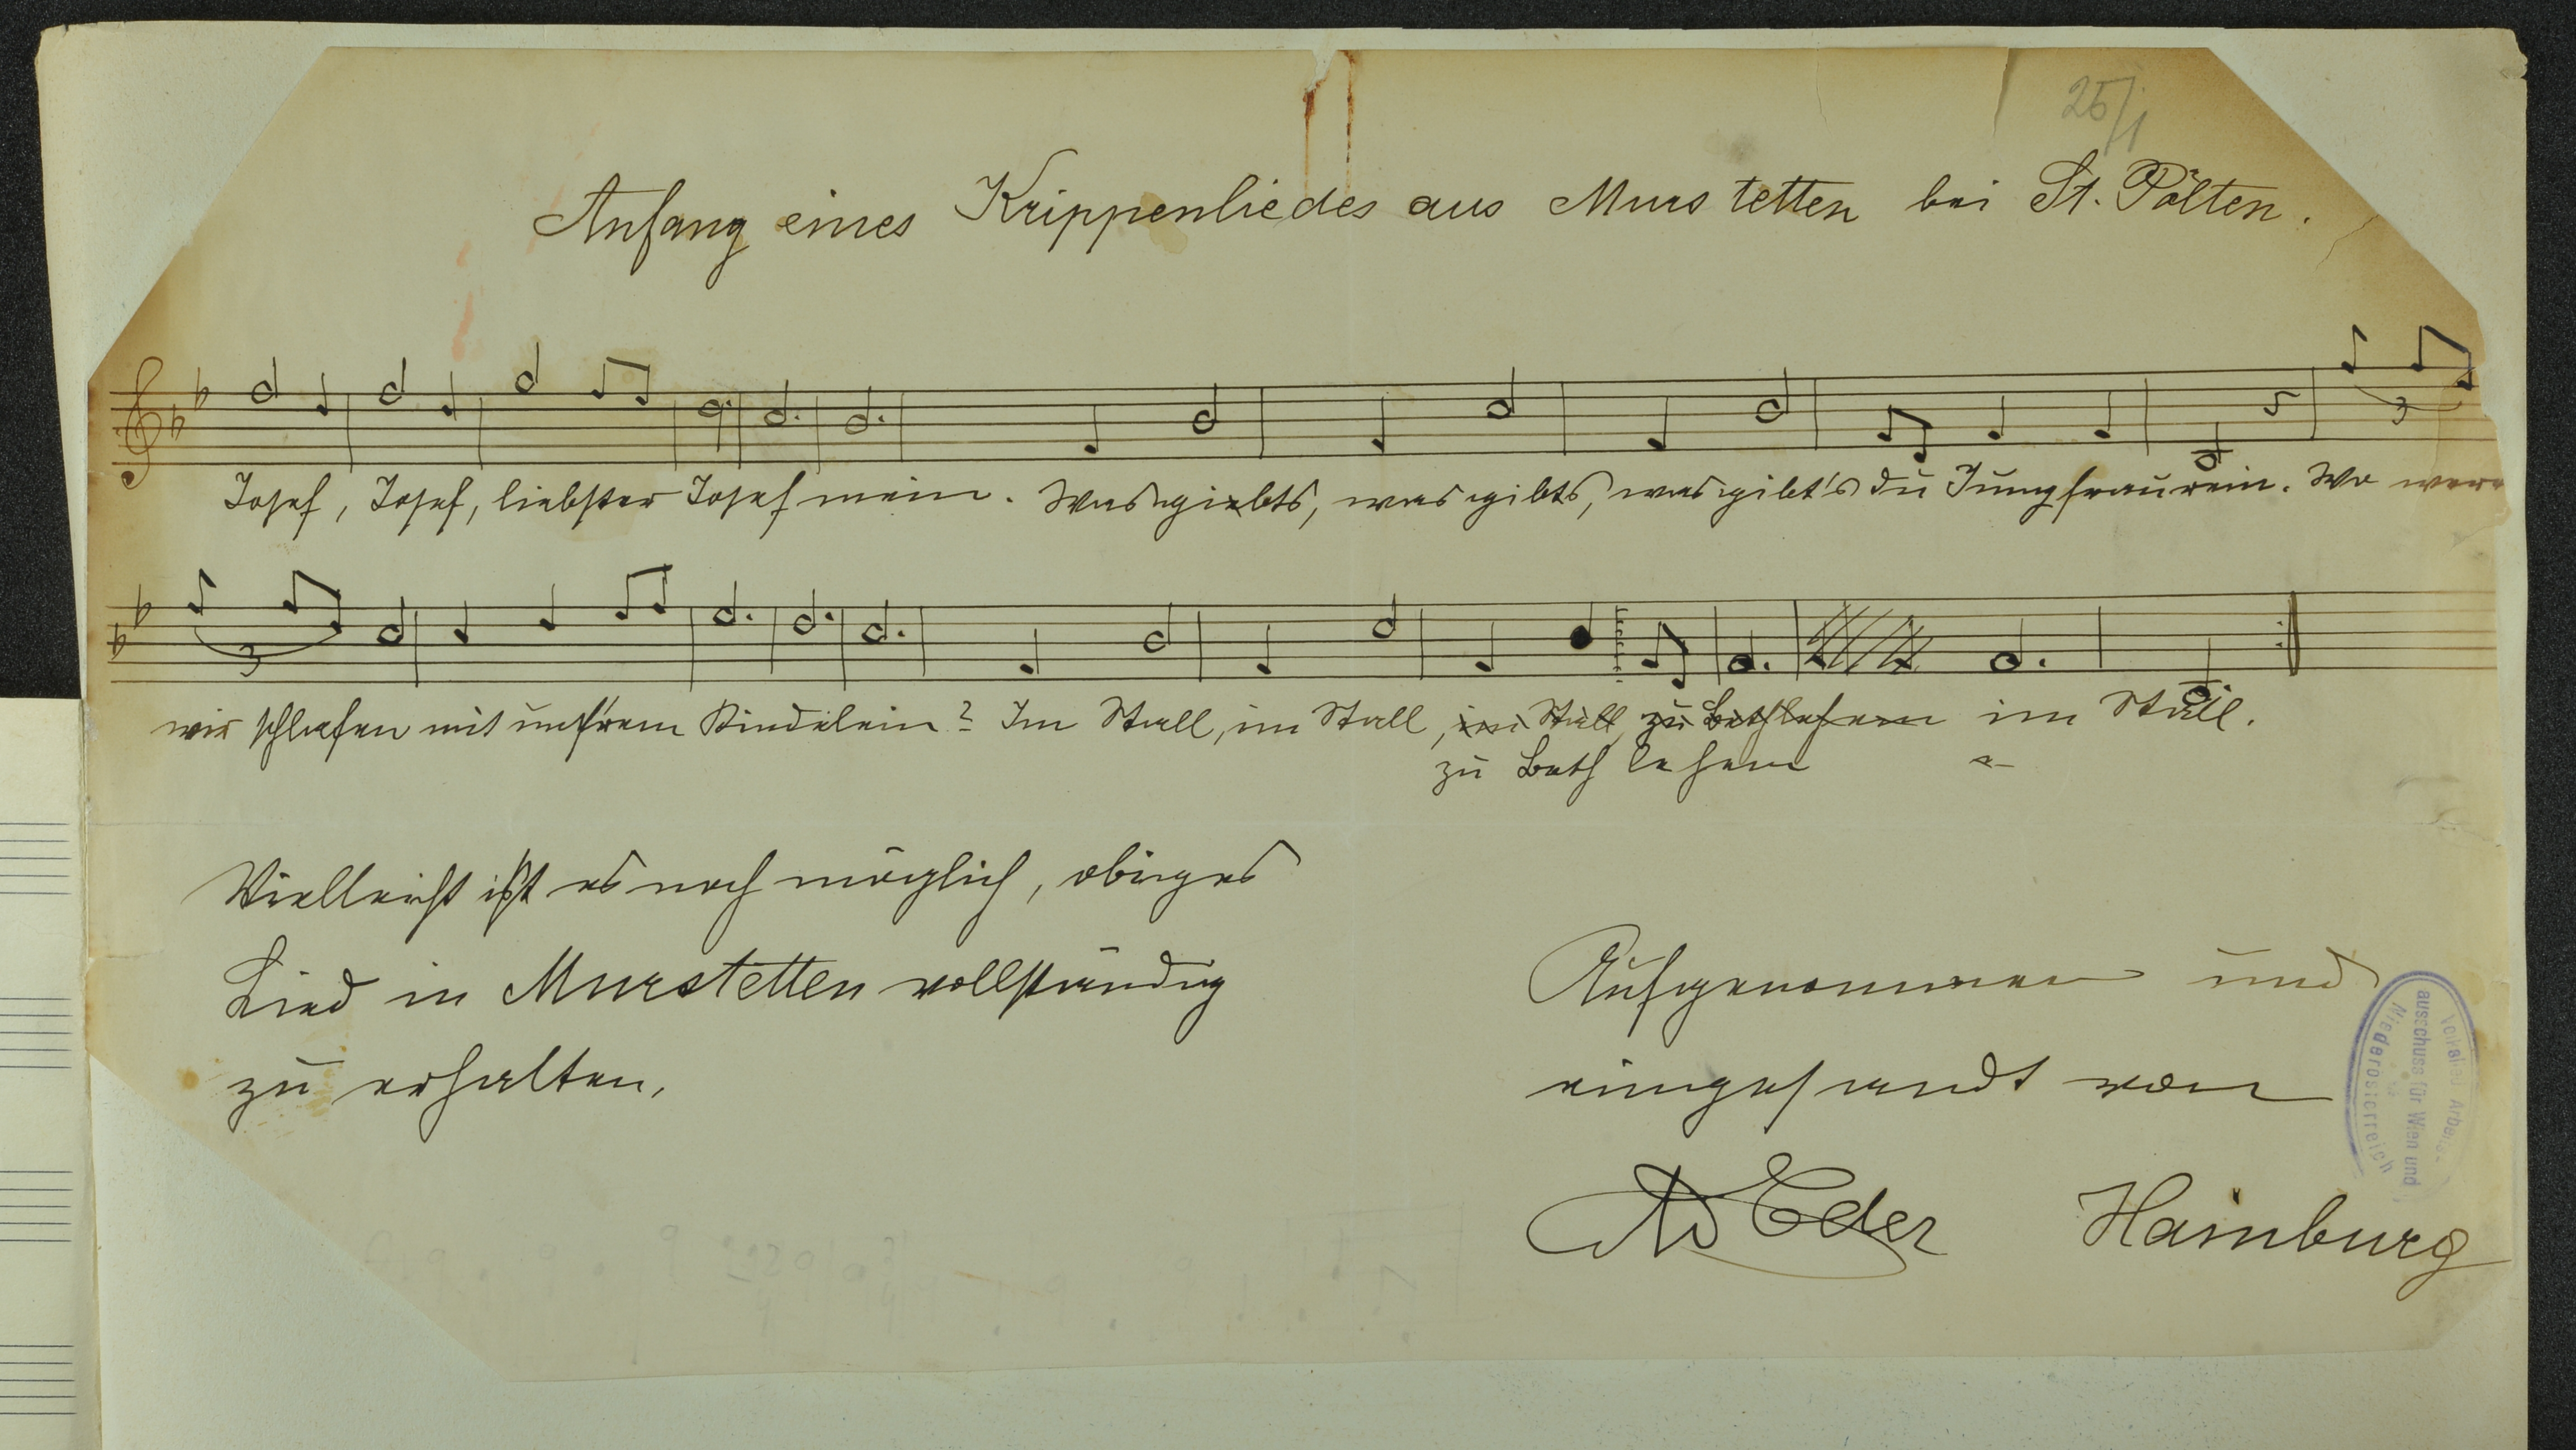 25/1
Anfang eines Krippenliedes aus Murstetten bei St. Pölten.
Josef, Josef, liebster Josef mein. Was giebts, was gibts, was gibt's du Jungfrau rein. Wo were
3
wir schlafen mit unsrem Kindelein? Im Stall, im Stall, im Stall, zu Bethlehem im Stall.
3
zu Beth lehem
Vielleicht ist es noch möglich, obiges
Lied in Murstetten vollständig
zu erhalten.
Aufgenommen und
eingesandt von
Eder Hainburg
ausschuss für Wien und
Niederösterreich